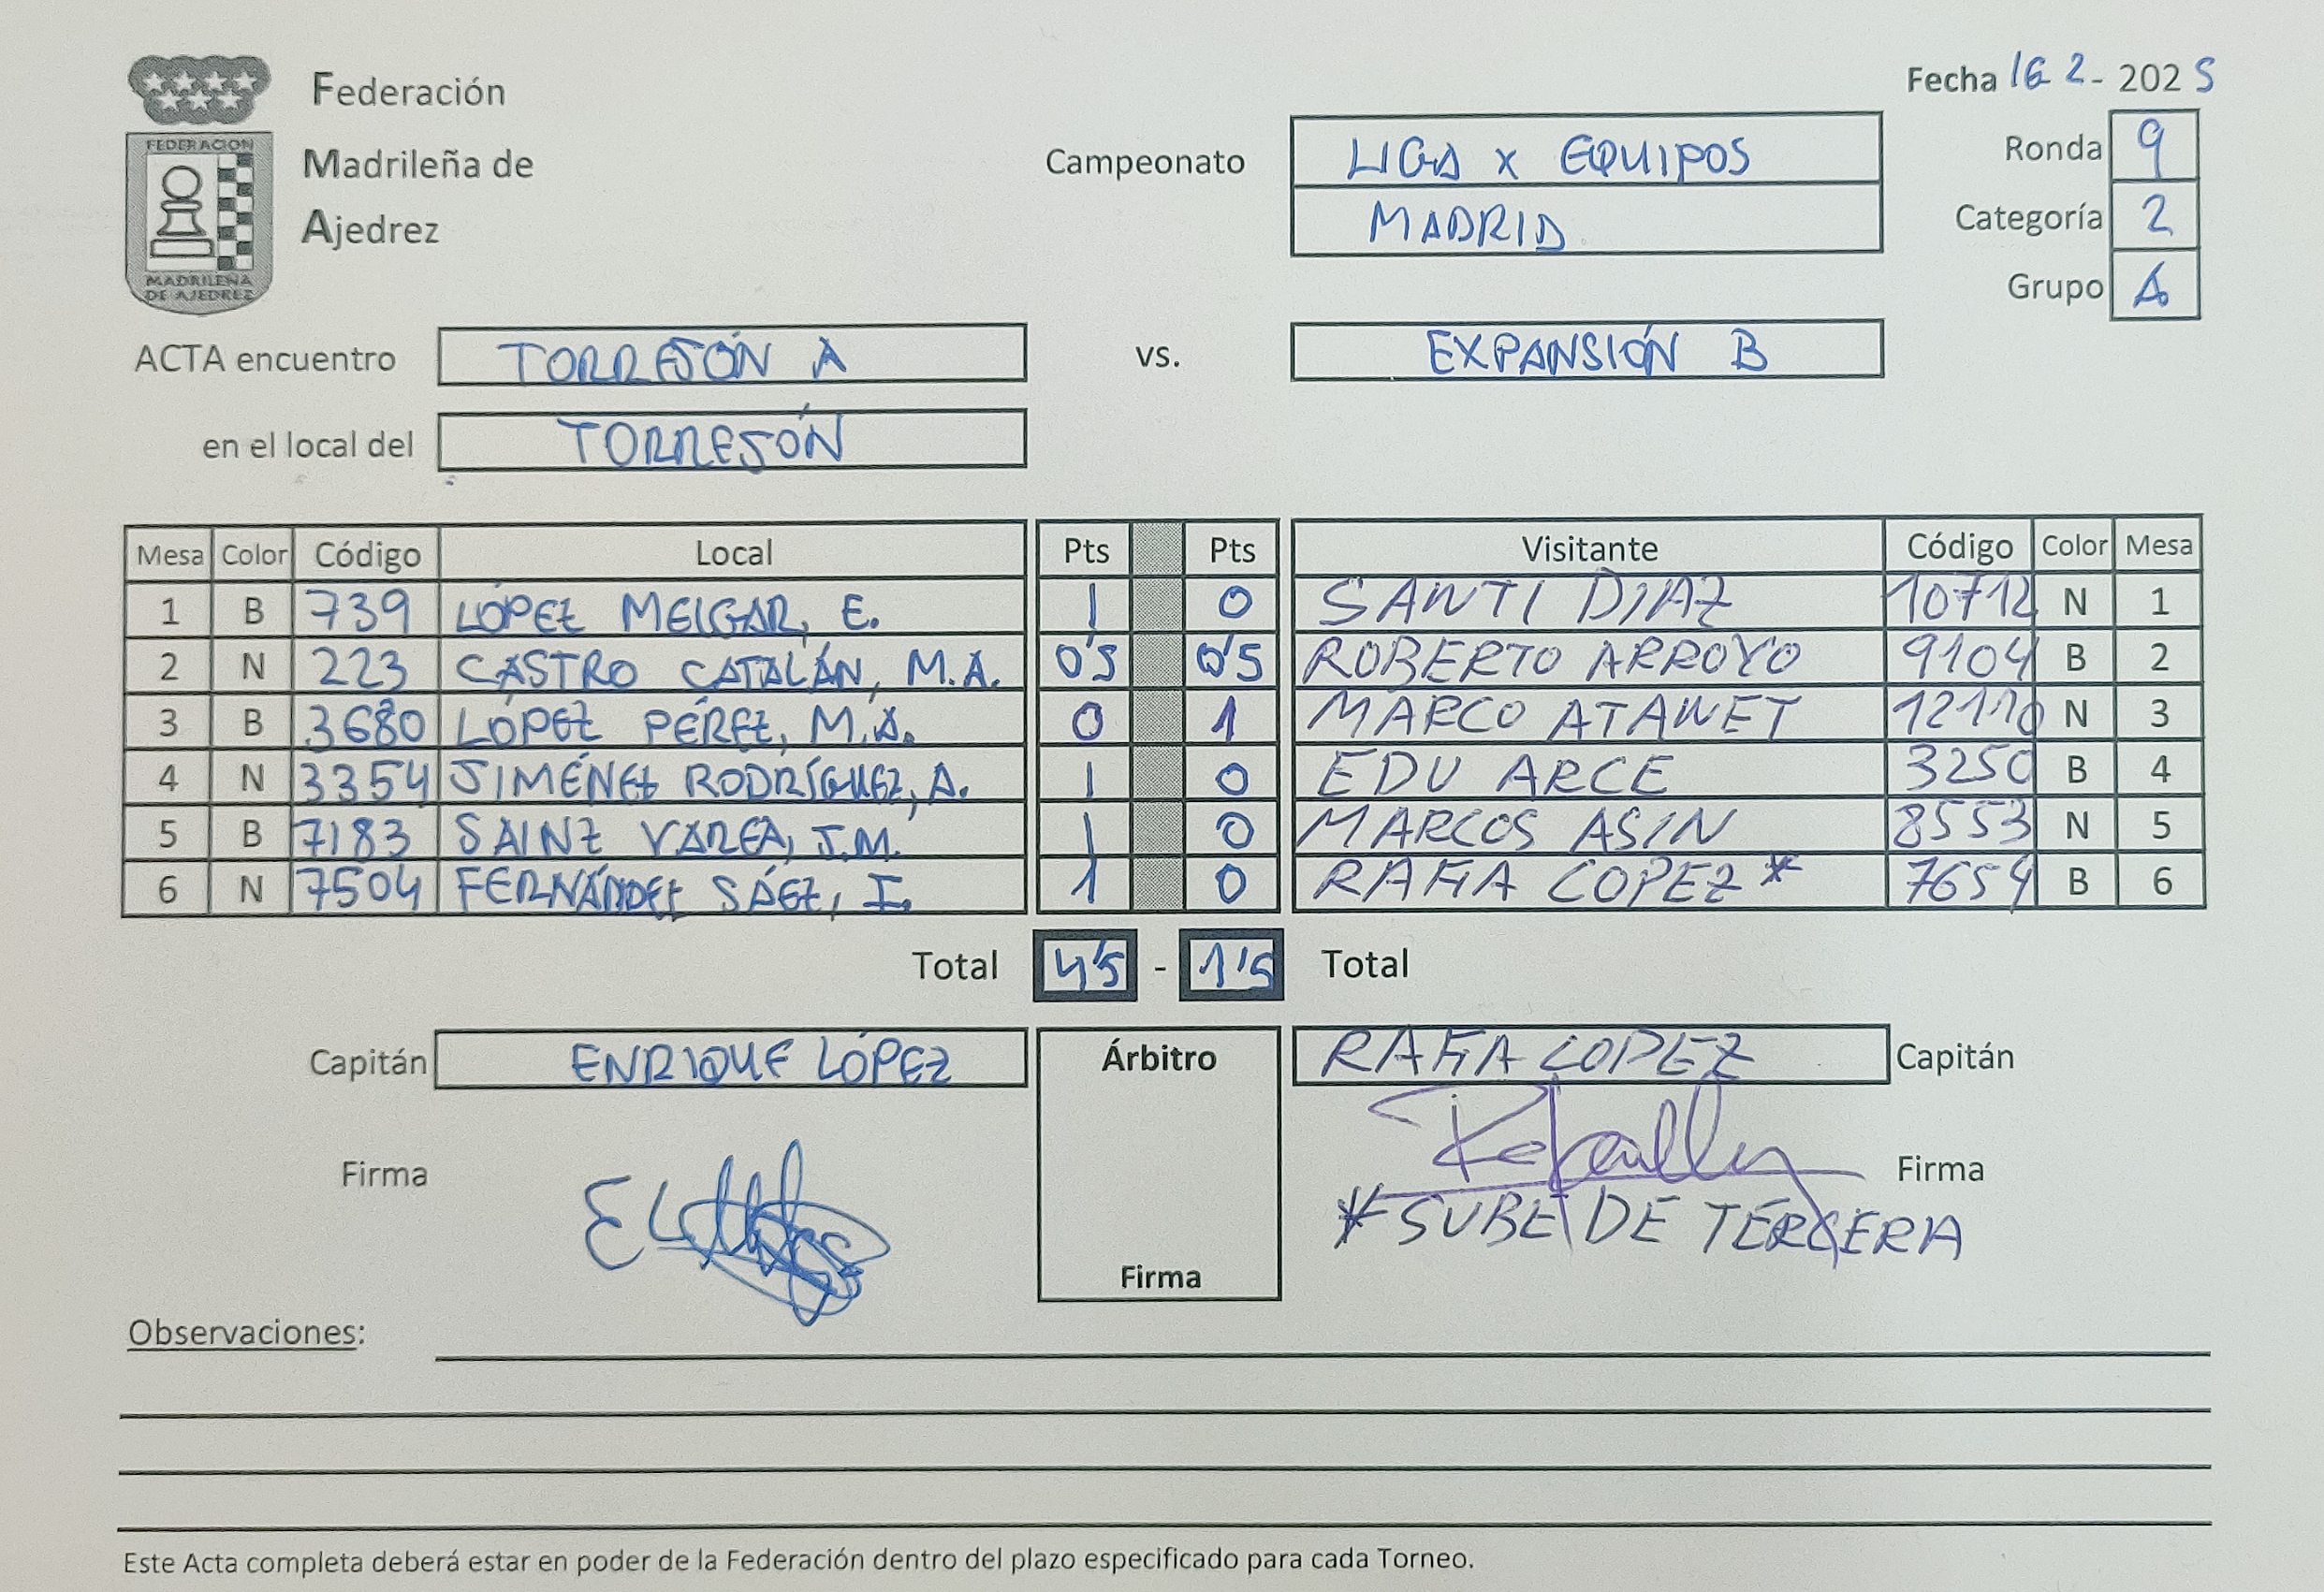 Federación
Madrileña de
Ajedrez
FEDERACION
MADRILEÑA
DE AJEDREZ
Fecha 16 2 - 2025
Campeonato LIGA x EQUIPOS
MADRID
Ronda 9
Categoría 2
Grupo A
ACTA encuentro TORREJÓN A vs. EXPANSIÓN B
en el local del TORREJÓN
Mesa Color Código Local Pts Pts Visitante Código Color Mesa
1 B 739 LÓPEZ MELGAR, E. 1 0 SANTI DIAZ 10712 N 1
2 N 223 CASTRO CATALÁN, M.A. 0'5 0'5 ROBERTO ARROYO 9104 B 2
3 B 3680 LÓPEZ PÉREZ, M.A. 0 1 MARCO ATANET 12110 N 3
4 N 3354 JIMÉNEZ RODRÍGUEZ, A. 1 0 EDU ARCE 3250 B 4
5 B 7183 SAINZ VAREA, J.M. 1 0 MARCOS ASIN 8553 N 5
6 N 7504 FERNÁNDEZ SÁEZ, I. 1 0 RAFA LOPEZ * 7654 B 6
Total 4'5 - 1'5 Total
Capitán ENRIQUE LÓPEZ Árbitro RAFA LOPEZ Capitán
Firma Firma
* SUBE DE TERCERA
Firma
Observaciones:
Este Acta completa deberá estar en poder de la Federación dentro del plazo especificado para cada Torneo.